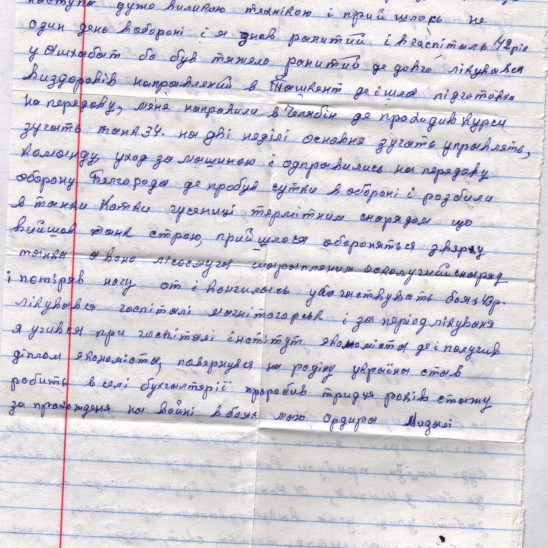 наступа дуже виликою тханівою і прийшлось не
один день вобороні і я знов ранитий і вгаспіталь 42 ріє
у Ашхабат бо був тяжело ранитий де довго лікувався
виздоровів направляний в Ташкент де ішла підготовка
на передову, мене направили в Челябін де проходив курси
зучать танк 34. на дві неділі основне зучать управлять,
команду уход за машиною і одправились на передаву
оборону Белгорода де пробув сутки в обороні і розбили
в танки катки гусениці термітним снарядом що
вийшов танк строю, прийшлося обороняться зверху
танка а воно осколучний снаряд
і потіряв ногу от і кончилысь участвувать боях 43р.
лікувався госпіталі магнітогорськ і за період лікуваня
я учився при госпіталі інстітут економіста де і получив
діплом економіста, повернувся на родіну україна став
робить в селі бухгалтерії проробив тридця років стажу
за прохожденя на войні в боях маю Ордира Мидалі